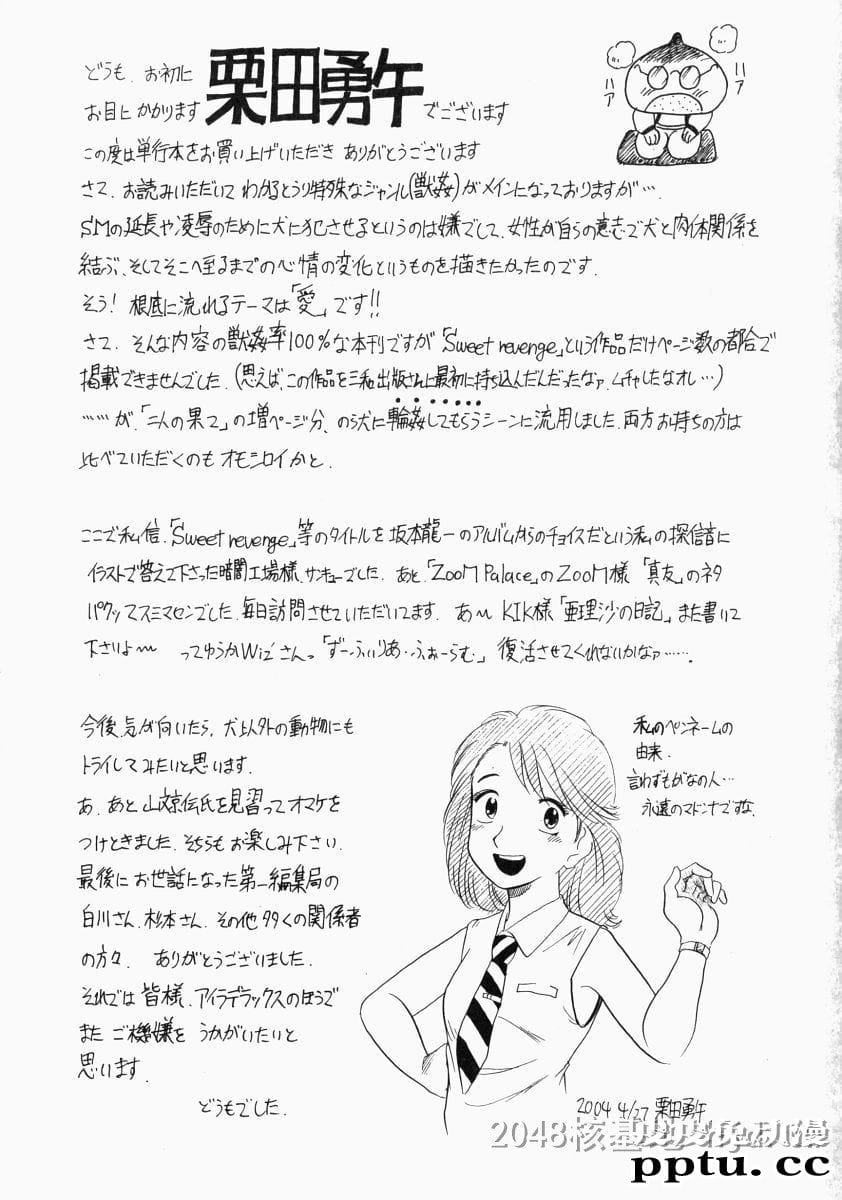 どうも、お初に
お目にかかります 栗田勇午 でございます
ハア
ハア
この度は単行本をお買い上げいただき ありがとうございます
さて、お読みいただいて わかるとうり特殊なジャンル(獣姦)がメインになっておりますが…、
SMの延長や凌辱のために犬に犯させるというのは嫌でして、女性が自らの意志で犬と肉体関係を
結ぶ、そしてそこへ至るまでの心情の変化というものを描きたかったのです。
そう! 根底に流れるテーマは「愛」です!!
さて、そんな内容の獣姦率100%な本刊ですが「Sweet revenge」という作品だけページ数の都合で
掲載できませんでした。(思えば、この作品を三和出版さんに最初に持ち込んだんだったなァ、ムチャしたなオレ…)
……が、「二人の果て」の増ページ分、のら犬に輪姦してもらうシーンに流用しました。両方お持ちの方は
比べていただくのも オモシロイかと。
ここで私信、「Sweet revenge」等のタイトルを坂本龍一のアルバムからのチョイスだという私の探信音に
イラストで答えて下さった暗闇工場様、サンキューでした。あと「ZooM Palace」のZooM様 「真友」のネタ
パクッてスミマセンでした。毎日訪問させていただいてます。 あ〜 KIK様「亜理沙の日記」また書いて
下さいよ〜 ってゆうかWiz'さんっ「ずーふぃりあ・ふぉーらむ」 復活させてくれないかなァ……。
今後、気が向いたら、犬以外の動物にも
トライしてみたいと思います。
あ、あと山文京伝氏を見習ってオマケを
つけときました。そちらもお楽しみ下さい。
最後にお世話になった第一編集局の
白川さん、杉本さん、その他多くの関係者
の方々、 ありがとうございました。
それでは皆様、アイラデラックスのほうで
また ご機嫌を うかがいたいと
思います。
どうもでした。
私のペンネームの
由来。
言わずもがなの人…
永遠のマドンナですな。
2004 4/27 栗田勇午
pptu.cc